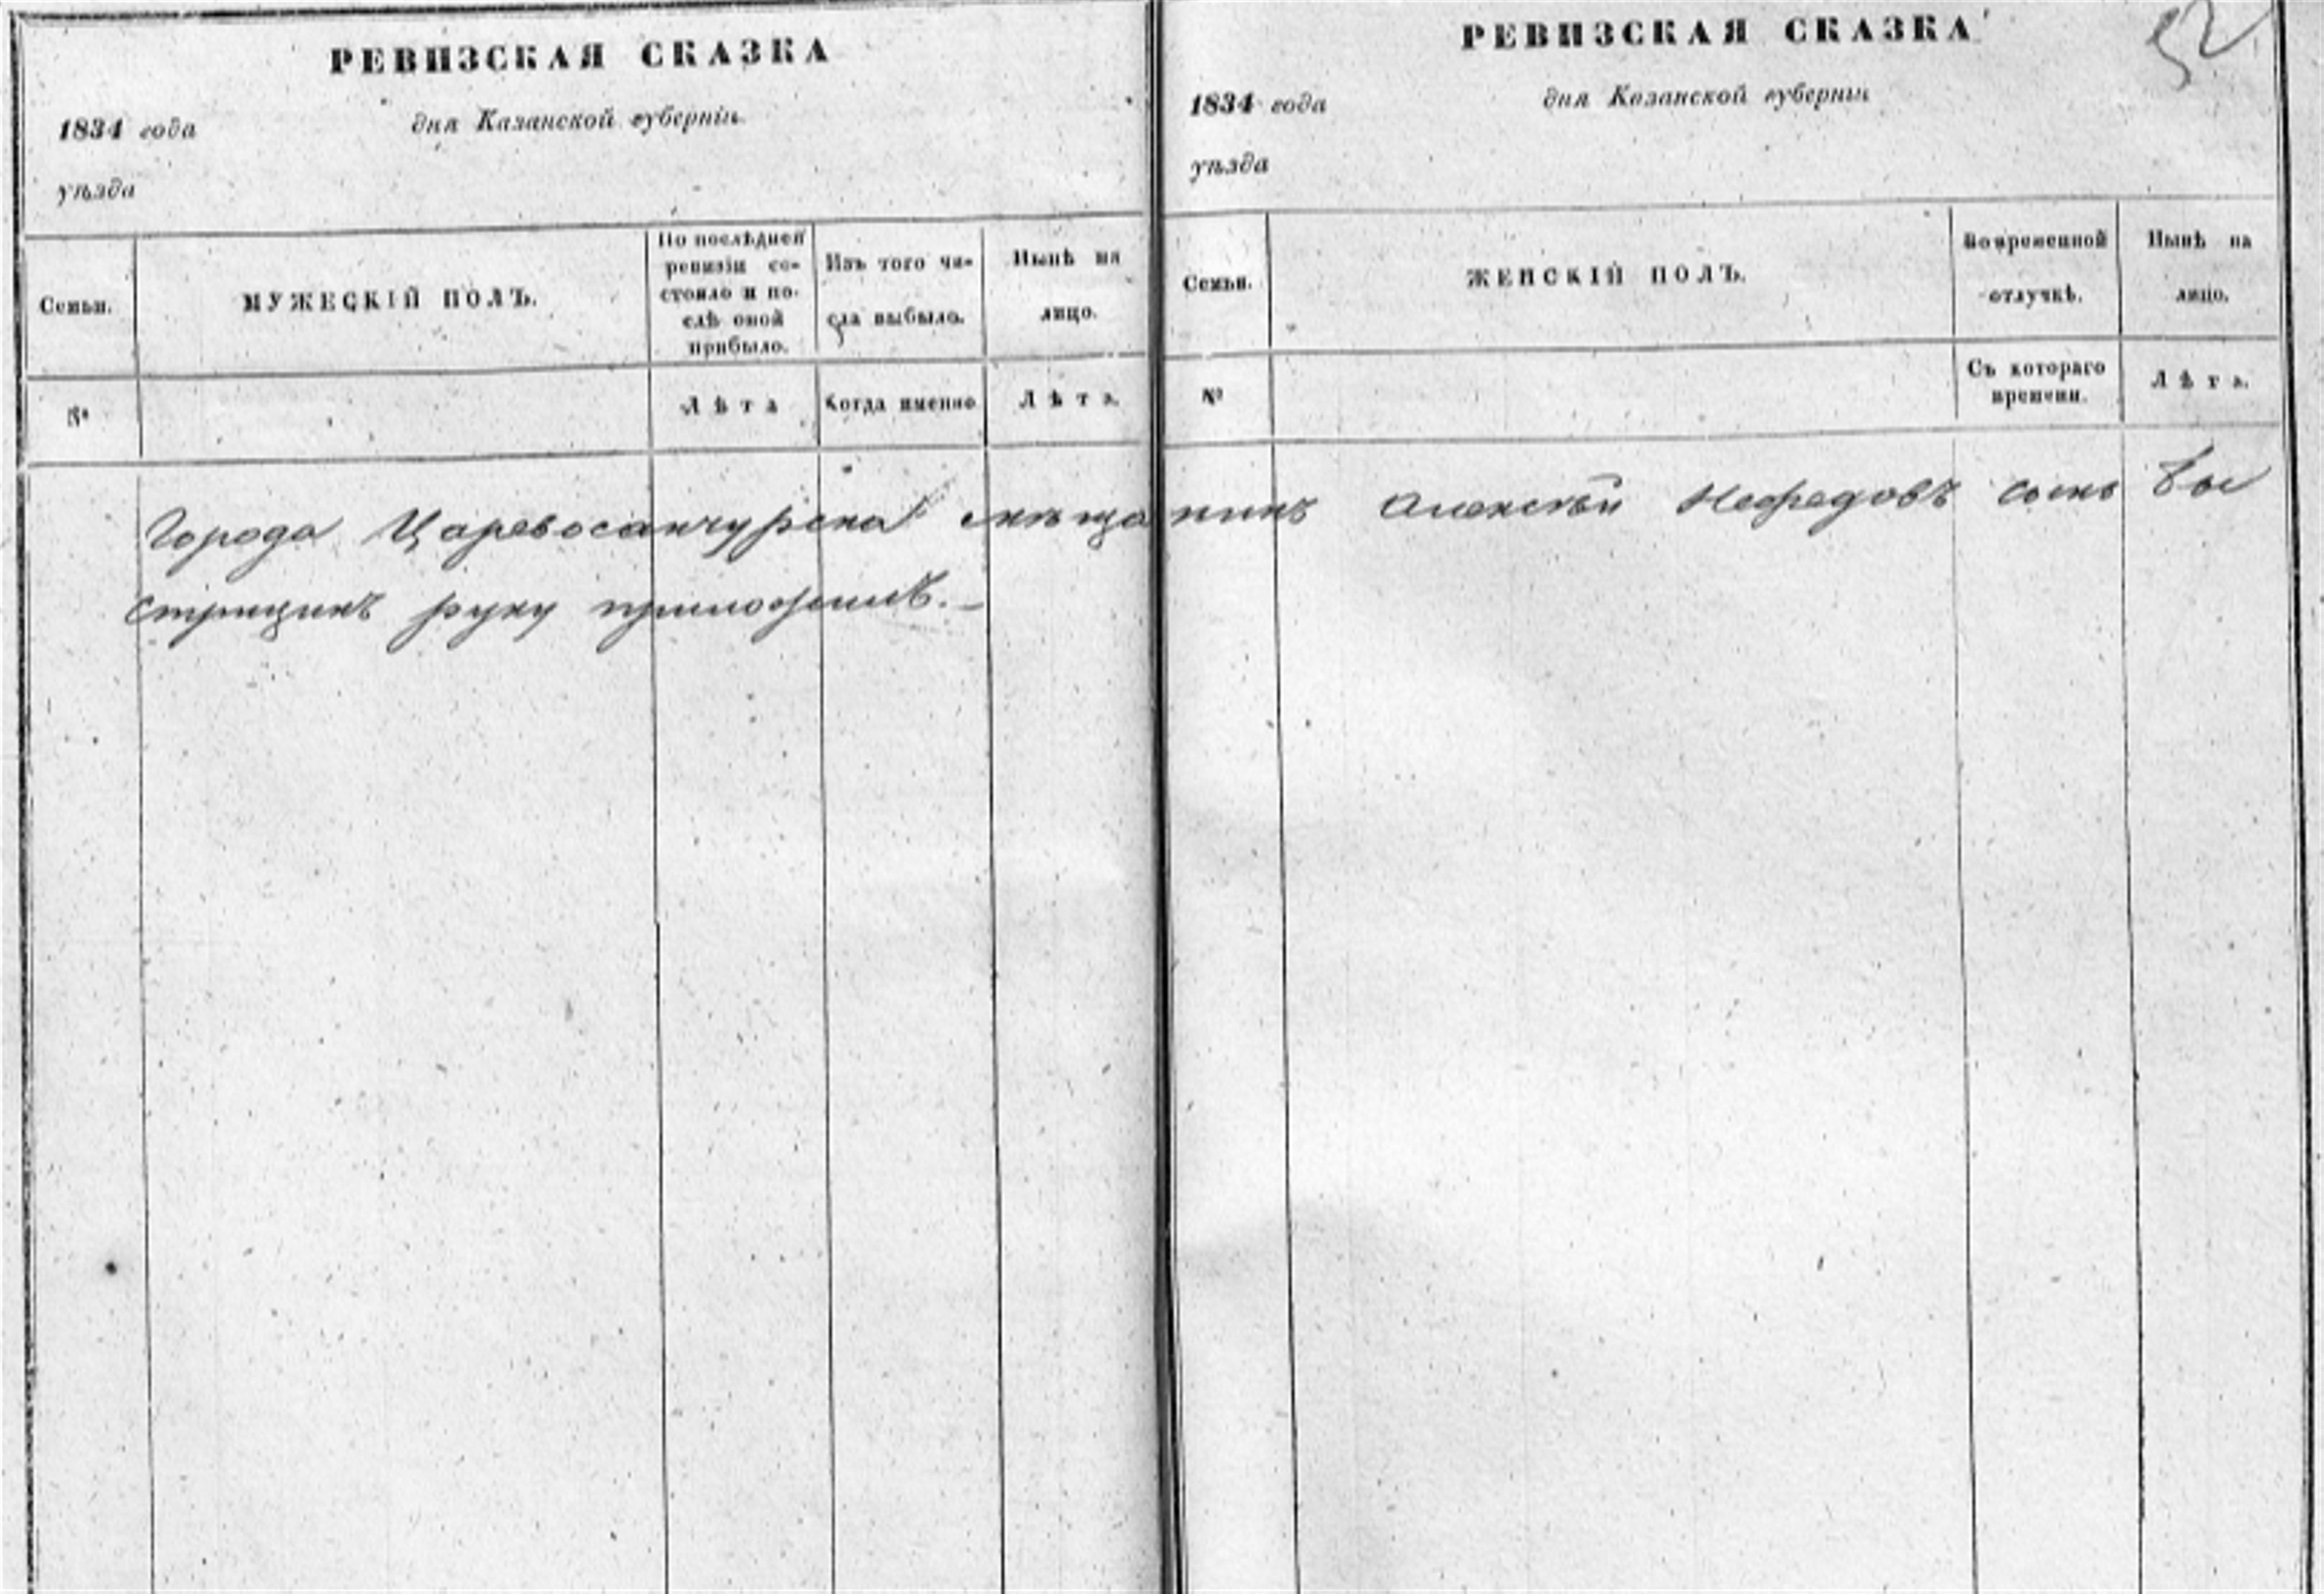 РЕВИЗСКАЯ СКАЗКА
1834 года дня Казанской губерніи
уѣзда
Семьи.
МУЖЕСКІЙ ПОЛЪ.
По послѣдней
ревизіи со-
стояло и по-
слѣ оной
прибыло.
Изъ того чи-
сла выбыло.
Нынѣ на
лицо.
№
Лѣта
Когда именно
Лѣта.
РЕВИЗСКАЯ СКАЗКА
52
1834 года дня Казанской губерніи
уѣзда
Семьи.
ЖЕНСКІЙ ПОЛЪ.
Во временной
отлучкѣ.
Нынѣ на
лицо.
№
Съ котораго
времени.
Лѣта.
Города Царевосанчурска мѣщанинъ Алексѣй Нефедовъ сынъ Вы
стрицинъ руку приложилъ.